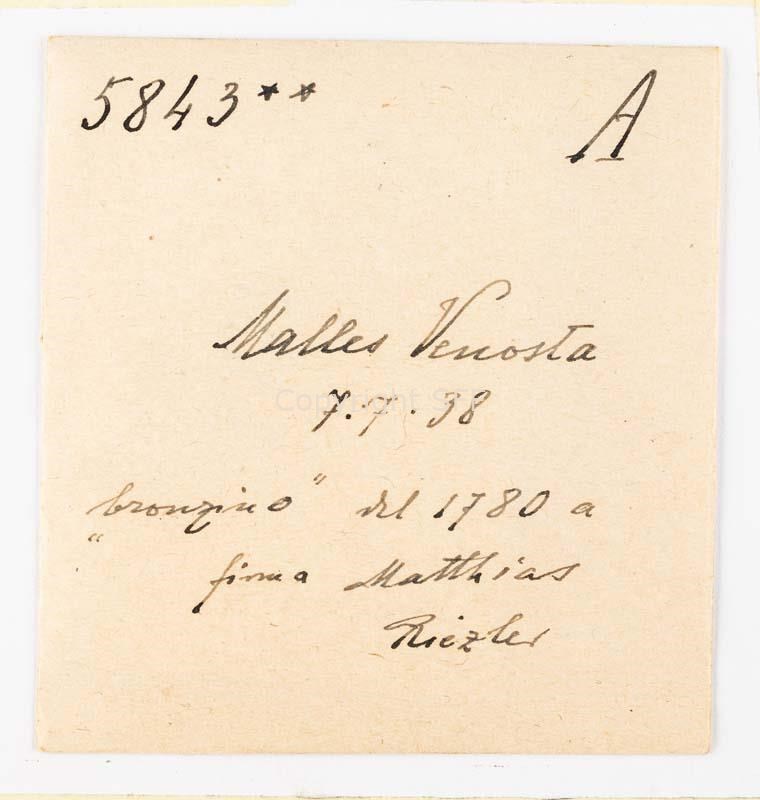 5843** A
Malles Venosta
7.7.38
"bronzino" del 1780 a
firma Matthias
Riezler